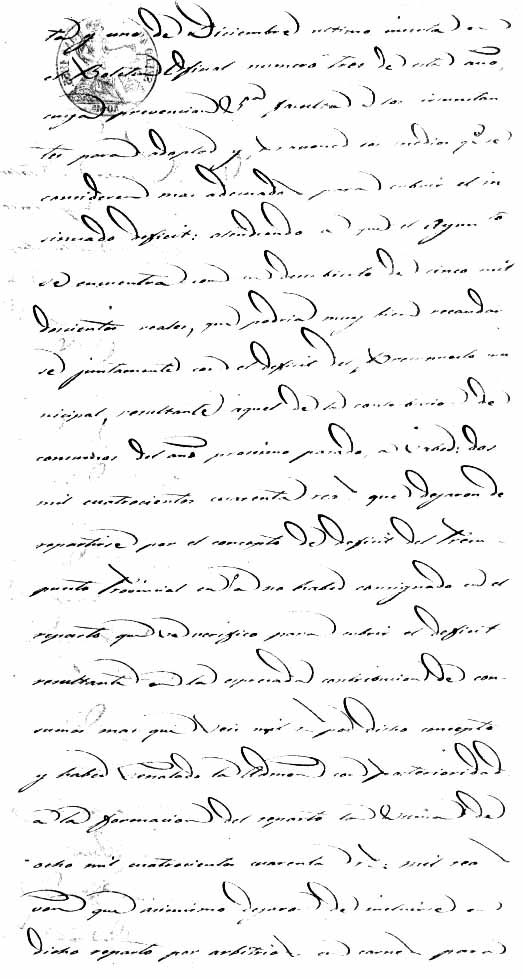 ta y uno de Diciembre ultimo inserta en
el Boletin Oficial numero tres de este año,
cuya prevencion 25ª faculta a los
tes para adoptar y los medios qe se
consideren mas adecuados para cubrir el in
sinuado deficit: atendiendo a que el Ayunto
se encuentra con un descubierto de cinco mil
doscientos reales, que podria muy bien recaudar
se juntamente con el deficit del Presupuesto mu
nicipal, resultante aquel de la contribucion de
consumos del año proximo pasado, a saber: dos
mil cuatrocientos cuarenta rs que dejaron de
repartirse por el concepto de deficit del Presu-
puesto Provincial en no haber consignado en el
reparto que se verifico para cubrir el deficit
resultante en la espresada contribucion de con
sumos mas que seis mil rs por dicho concepto
y haber señalado la Admon con posterioridad
a la formacion del reparto la suma de
ocho mil cuatrocientos cuarenta rs: mil rea
que asimismo dejaron de incluirse en
dicho reparto por arbitrio en carnes para